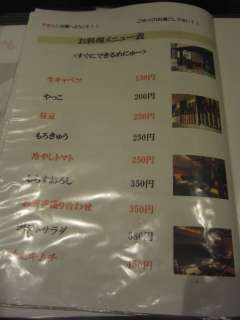 お料理メニュー表
<すぐにできるめにゅー>
生キャベツ 150円
やっこ 200円
枝豆 250円
もろきゅう 250円
冷やしトマト 250円
しらすおろし 350円
盛り合わせ 350円
サラダ 380円
450円